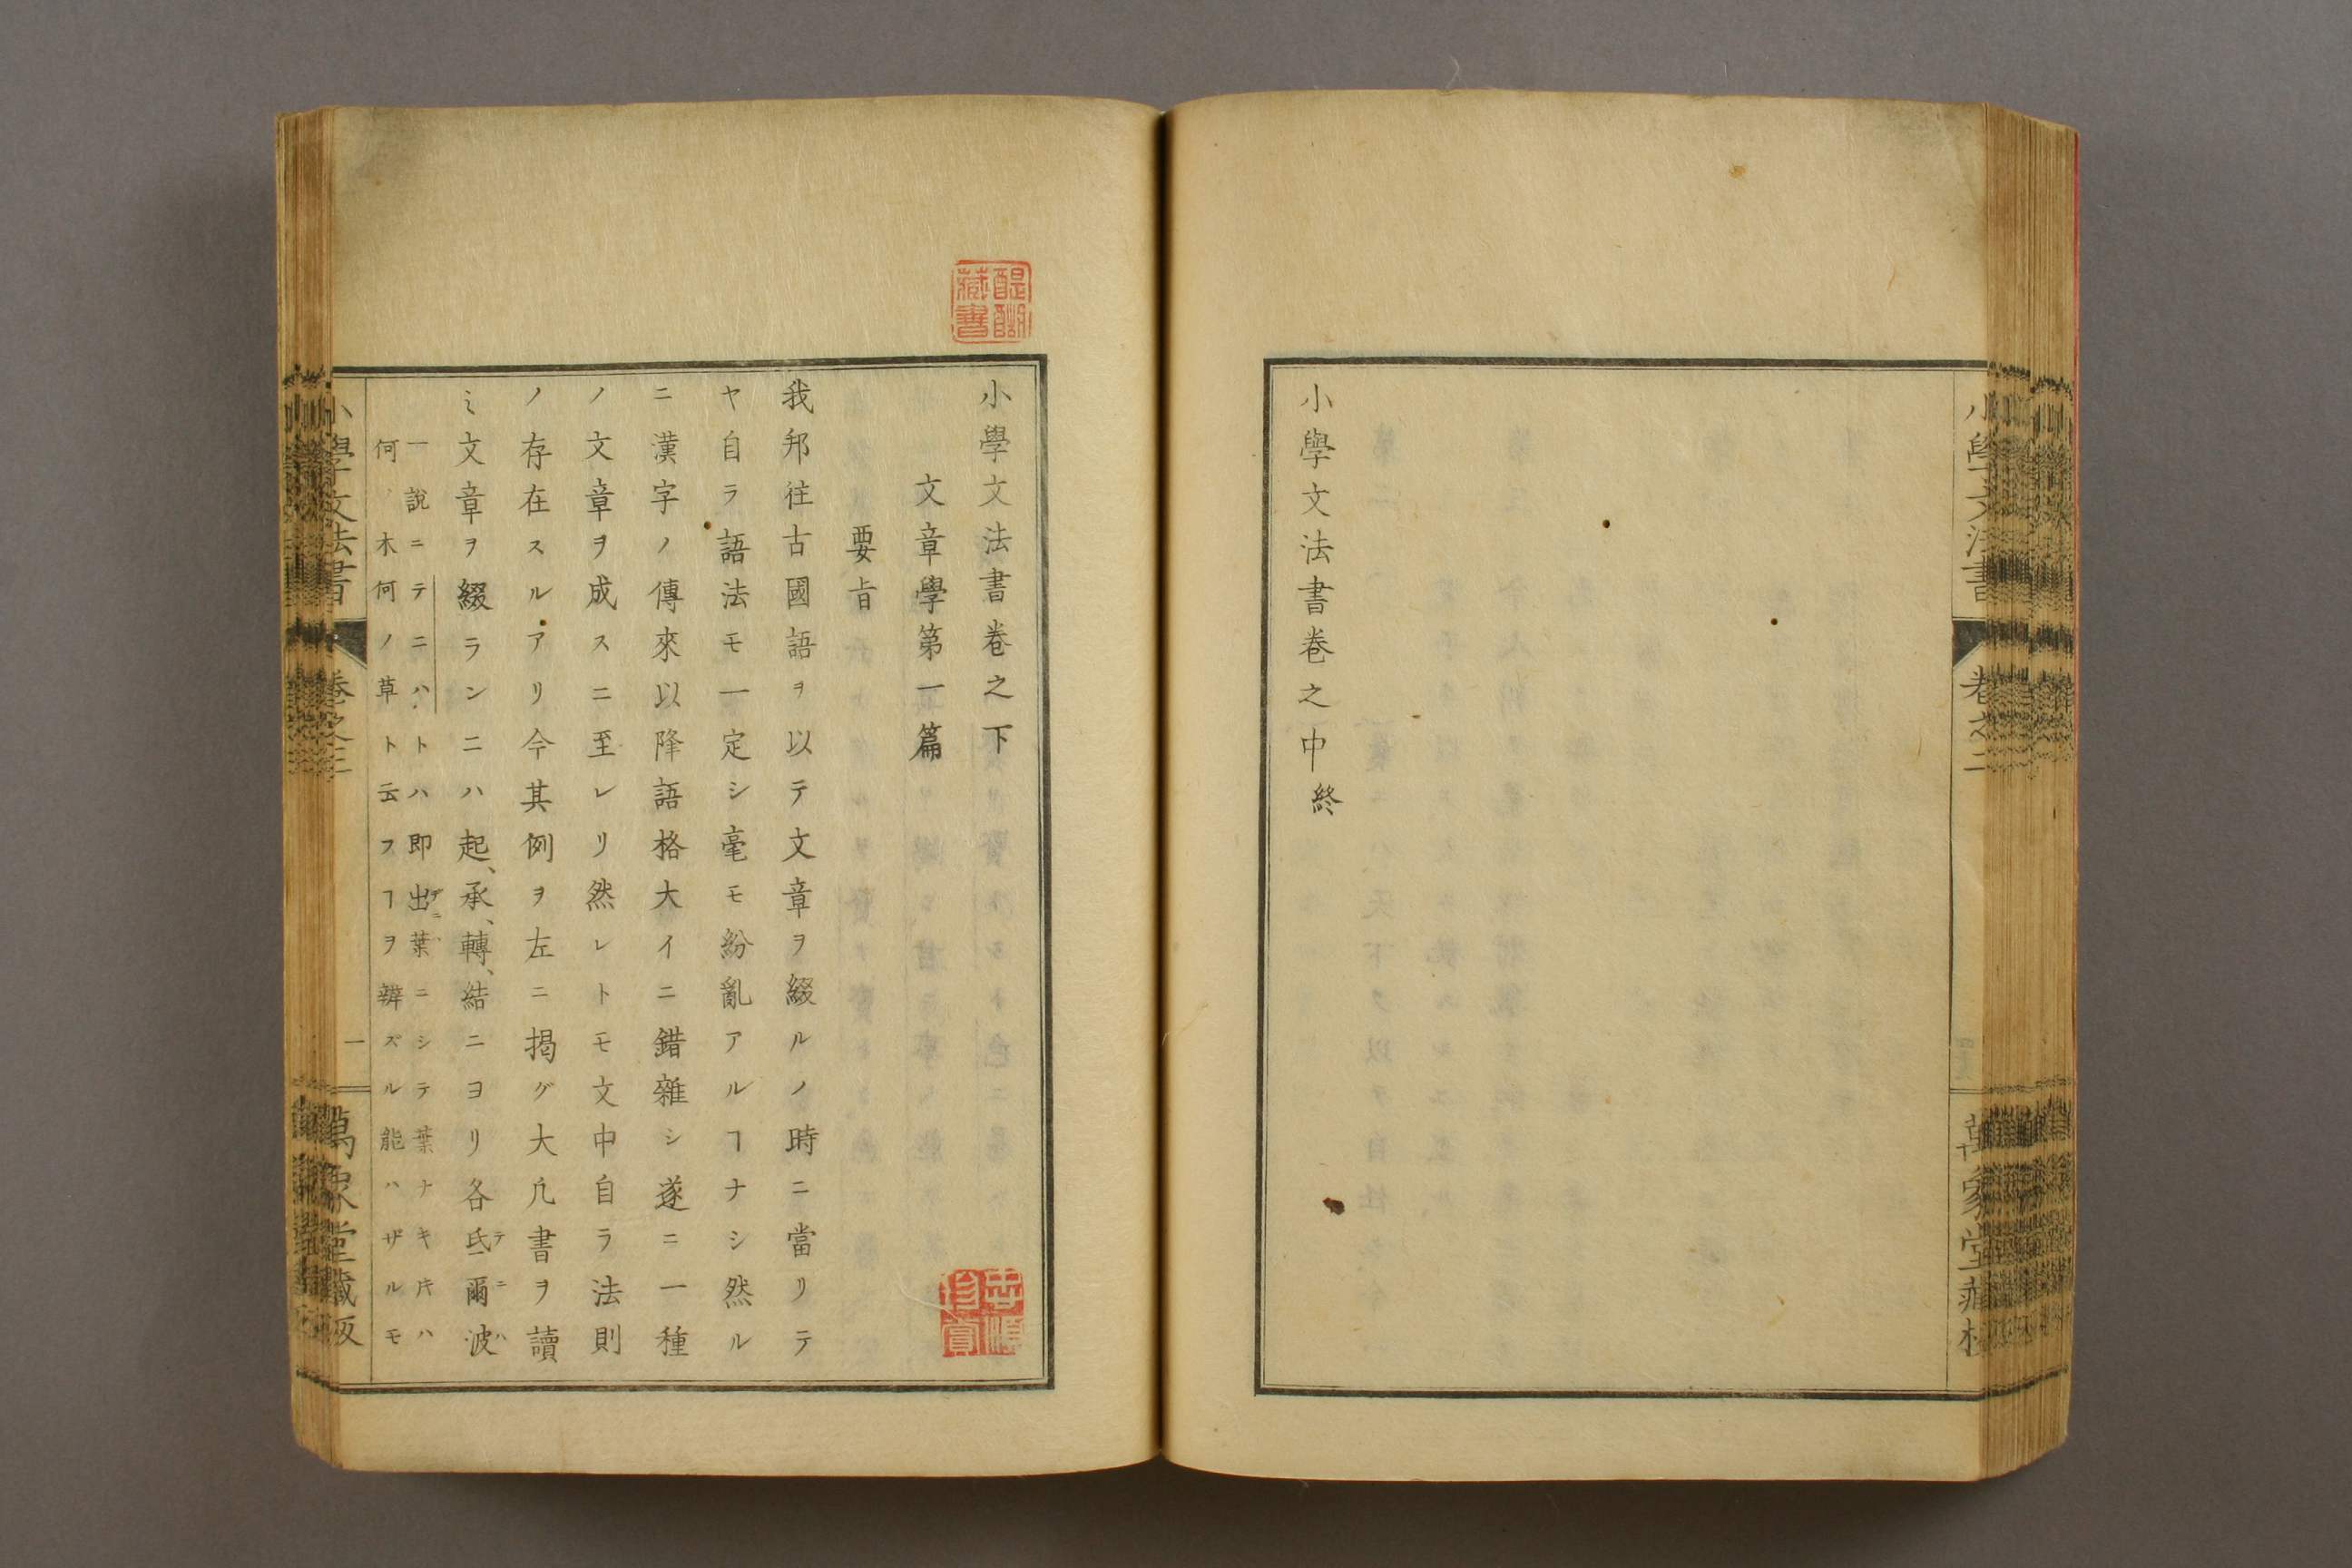 小學文法書卷之中終
小學文法書
卷之二
萬象堂藏板
醍醐
藏書
小學文法書卷之下
文章學第一篇
要旨
我邦徃古國語ヲ以テ文章ヲ綴ルノ時ニ當リテ
ヤ自ラ語法モ一定シ毫モ紛亂アルヿナシ然ル
ニ漢字ノ傳來以降語格大イニ錯雜シ遂ニ一種
ノ文章ヲ成スニ至レリ然レトモ文中自ラ法則
ノ存在スルアリ今其例ヲ左ニ揭グ大凡書ヲ讀
ミ文章ヲ綴ランニハ起、承、轉、結ニヨリ各氐爾波
テニハ
一說ニテニハトハ即出葉ニシテ葉ナキ片ハ
デニハ
何ノ木何ノ草ト云フヿヲ辨ズル能ハザルモ
小學文法書
卷之三
一
萬象堂藏板